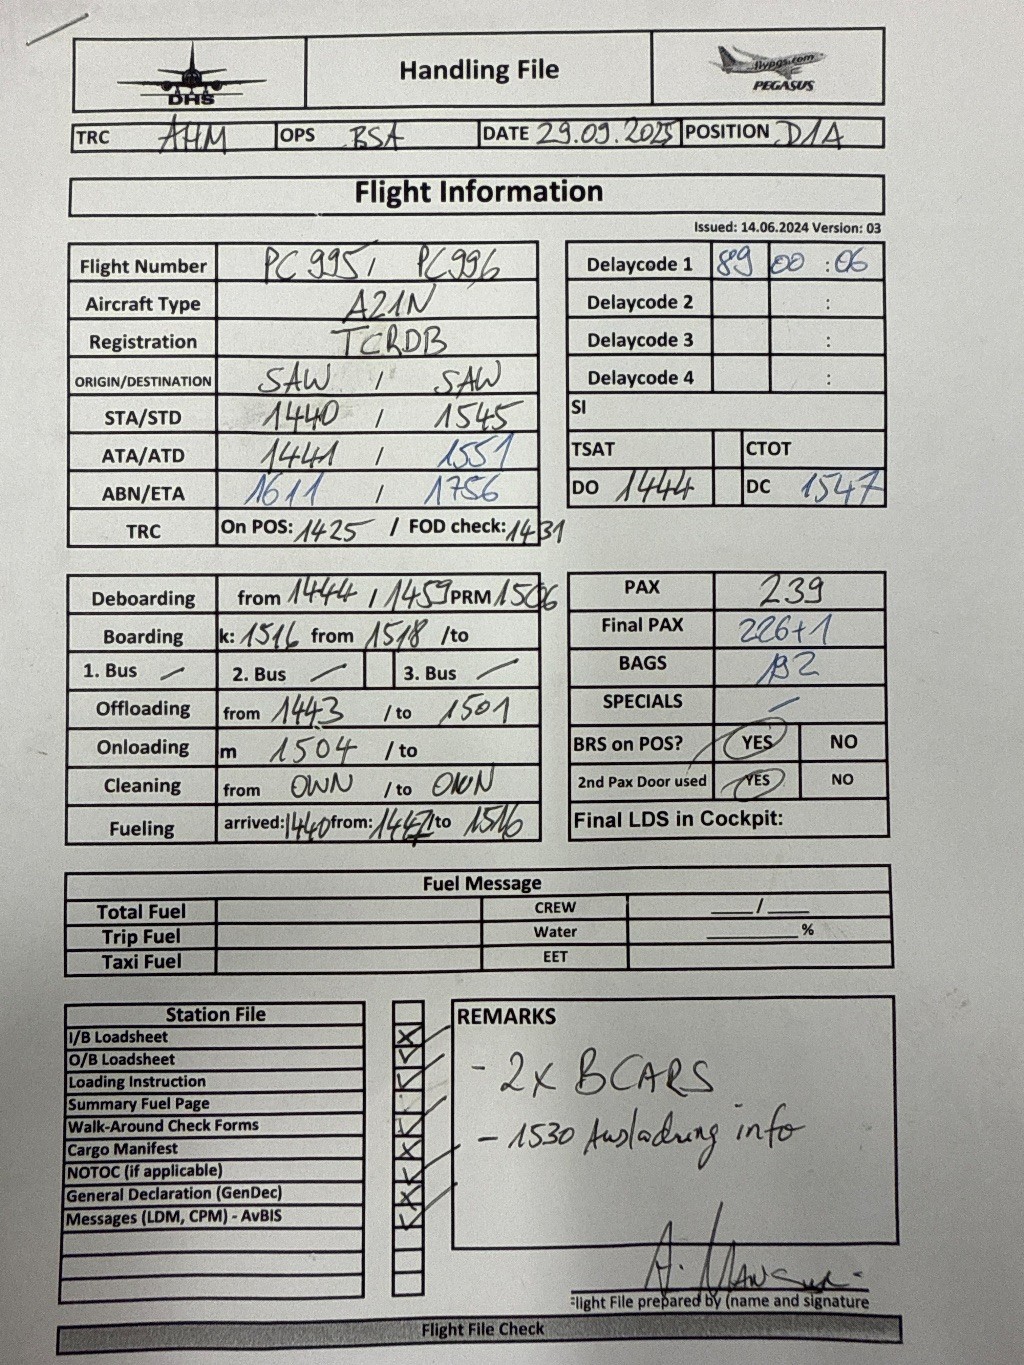 DHS
Handling File
flypgs.com
PEGASUS
TRC AHM OPS BSA DATE 29.09.2025 POSITION D1A
Flight Information
Issued: 14.06.2024 Version: 03
Flight Number PC995 / PC996
Aircraft Type A21N
Registration TCRDB
ORIGIN/DESTINATION SAW / SAW
STA/STD 1440 / 1545
ATA/ATD 1441 / 1551
ABN/ETA 1611 / 1756
TRC On POS: 1425 / FOD check: 1431
Delaycode 1 89 00 : 06
Delaycode 2 :
Delaycode 3 :
Delaycode 4 :
SI
TSAT CTOT
DO 1444 DC 1547
Deboarding from 1444 / 1459 PRM 1506
Boarding k: 1516 from 1518 /to
1. Bus – 2. Bus – 3. Bus –
Offloading from 1443 / to 1501
Onloading m 1504 / to
Cleaning from OWN / to OWN
Fueling arrived: 1440 from: 1447 /to 1516
PAX 239
Final PAX 226+1
BAGS 192
SPECIALS –
BRS on POS? YES NO
2nd Pax Door used YES NO
Final LDS in Cockpit:
Fuel Message
Total Fuel CREW ___/___
Trip Fuel Water ______%
Taxi Fuel EET
Station File
I/B Loadsheet
O/B Loadsheet
Loading Instruction
Summary Fuel Page
Walk-Around Check Forms
Cargo Manifest
NOTOC (if applicable)
General Declaration (GenDec)
Messages (LDM, CPM) - AvBIS
REMARKS
- 2x BCARS
- 1530 Ausladung info
Flight File prepared by (name and signature
Flight File Check